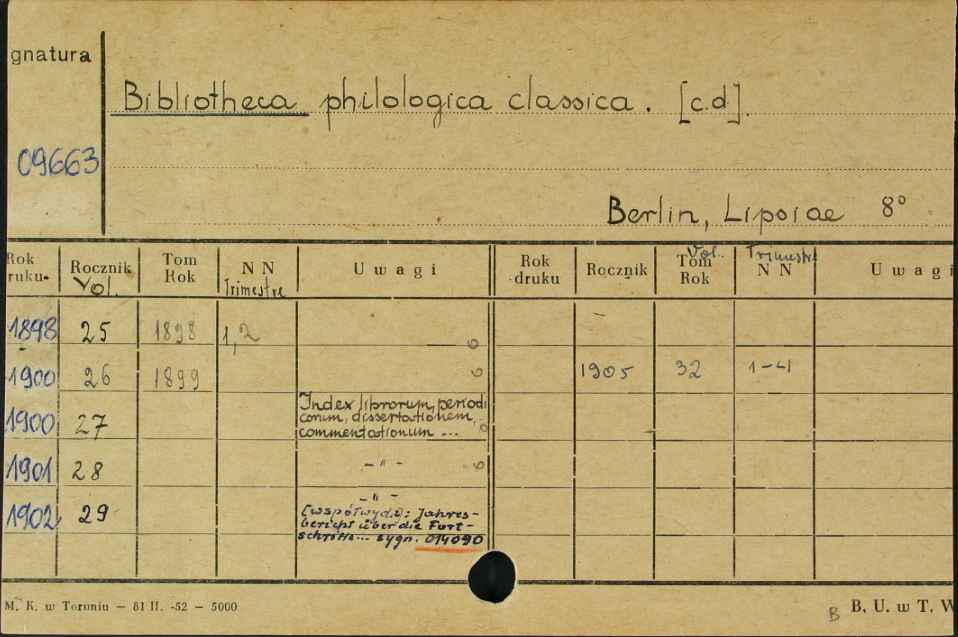 gnatura
Bibliotheca philologica classica. [c.d].
09663
Berlin, Lipsiae 8°
Rok ruku- Rocznik Vol. Tom Rok N N Trimestre Uwagi Rok druku Rocznik Vol. Tom Rok Trimestre N N Uwagi
1898 25 1898 1,2
1900 26 1899 1905 32 1-4
1900 27 Index librorum, periodi
corum, dissertationem,
commentationum ...
1901 28 - " -
1902 29 - " -
[współwyd.]: Jahres-
bericht über die Fort-
schritte... sygn. 014090
M. K. w Toruniu — 81 II. -52 — 5000
B B. U. w T. W